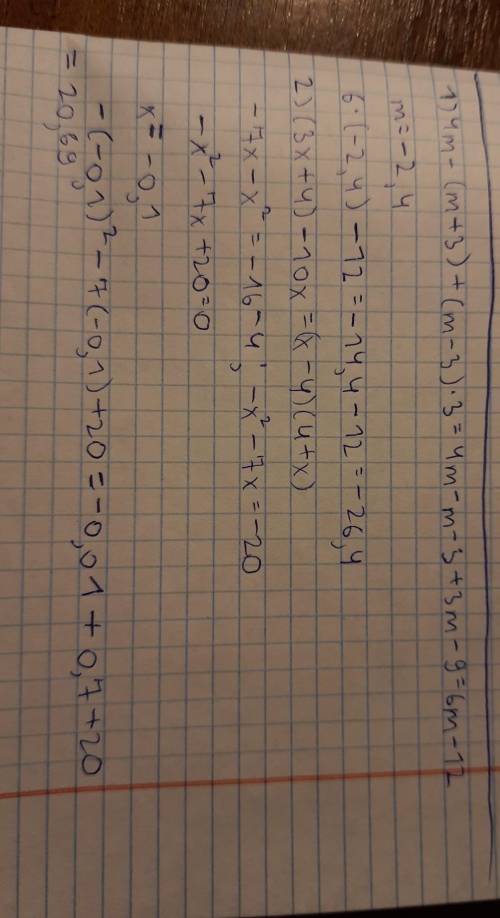 1) 4m - (m+3) + (m-3)·3 = 4m - m - 3 + 3m - 9 = 6m - 12
m = -2,4
6·(-2,4) - 12 = -14,4 - 12 = -26,4
2) (3x+4) - 10x = (x-4)(4+x)
-7x - x² = -16 - 4; -x² - 7x = -20
-x² - 7x + 20 = 0
x = -0,1
-(-0,1)² - 7(-0,1) + 20 = -0,01 + 0,7 + 20
= 20,69